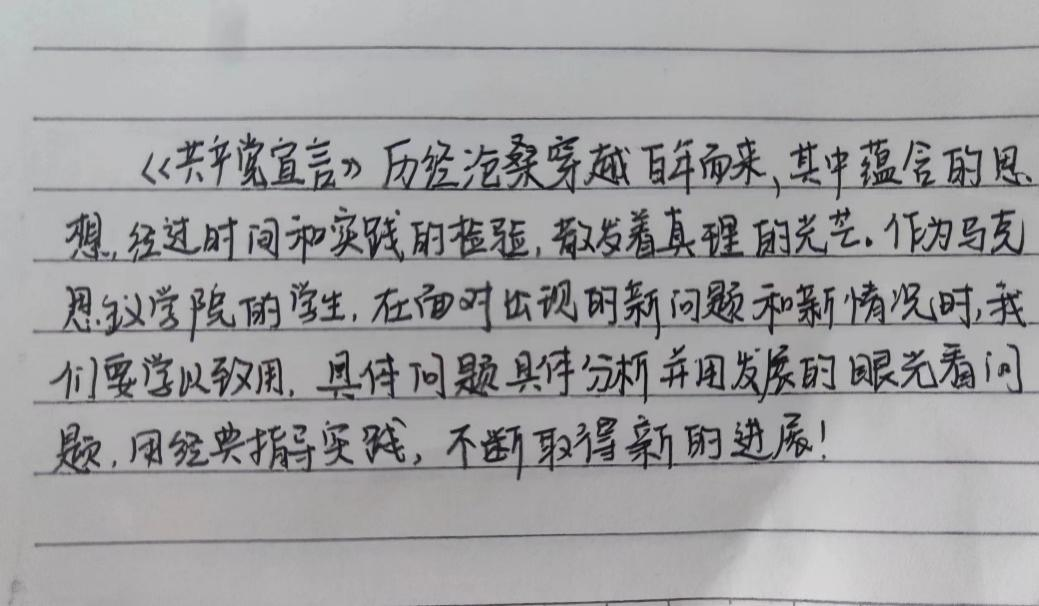 《共产党宣言》历经沧桑穿越百年而来,其中蕴含的思
想,经过时间和实践的检验,散发着真理的光芒。作为马克
思主义学院的学生,在面对出现的新问题和新情况时,我
们要学以致用,具体问题具体分析并用发展的眼光看问
题,用经典指导实践,不断取得新的进展!